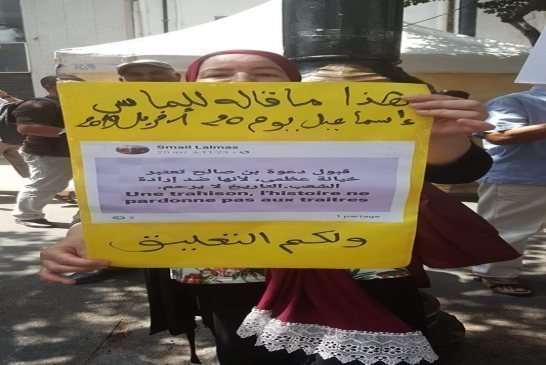 هذا ما قاله للماس
إسماعيل يوم 20 أفريل 2019
Smail Lalmas
20 avr. à 11:23
قبول دعوة بن صالح تعتبر
خيانة عظمى، لأنها ضد إرادة
الشعب. التاريخ لا يرحم.
Une trahison, l'histoire ne
pardonne pas aux traitres
2
1 partage
ولكم التعليق